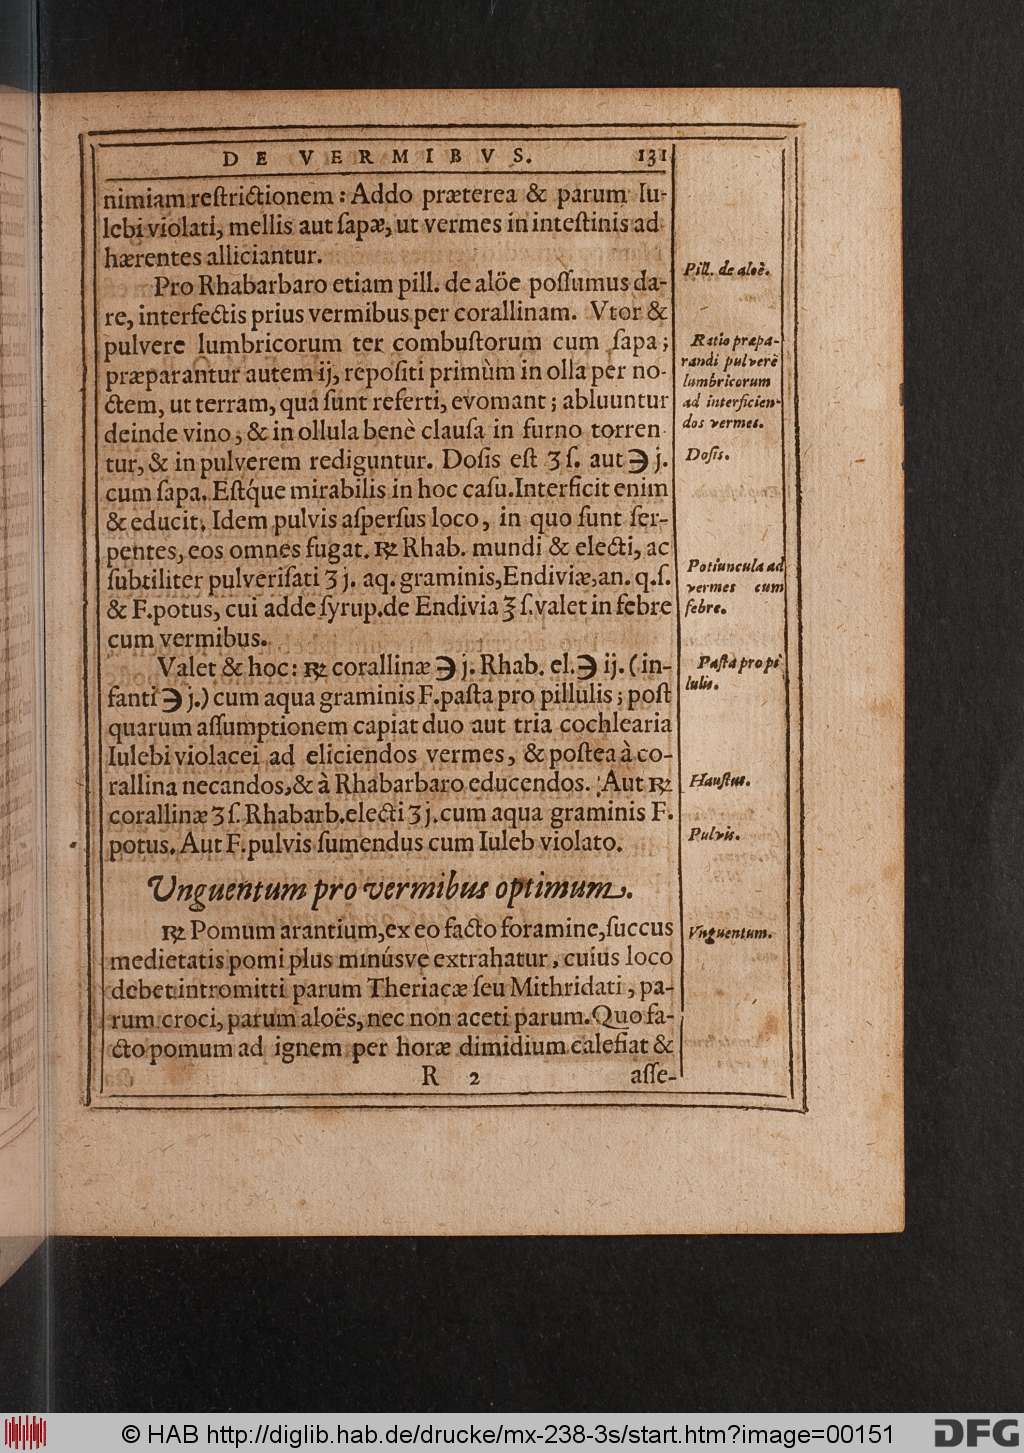 DE VERMIBVS. 131
nimiam reſtrictionem : Addo præterea & parum Iu-
lebi violati, mellis aut ſapæ, ut vermes in inteſtinis ad
hærentes alliciantur.
Pro Rhabarbaro etiam pill. de alöe poſſumus da-
re, interfectis prius vermibus per corallinam. Vtor &
pulvere lumbricorum ter combuſtorum cum ſapa;
præparantur autem ij, repoſiti primùm in olla per no-
ctem, ut terram, quâ ſunt referti, evomant ; abluuntur
deinde vino, & in ollula benè clauſa in furno torren
tur, & in pulverem rediguntur. Doſis eſt ʒ ſ. aut ℈ j.
cum ſapa. Eſtq́ue mirabilis in hoc caſu. Interficit enim
& educit. Idem pulvis aſperſus loco, in quo ſunt ſer-
pentes, eos omnes fugat. ℞ Rhab. mundi & electi, ac
ſubtiliter pulveriſati ʒ j. aq. graminis, Endiviæ, an. q.ſ.
& F. potus, cui adde ſyrup. de Endivia ʒ ſ. valet in febre
cum vermibus.
Valet & hoc: ℞ corallinæ ℈ j. Rhab. el. ℈ ij. (in-
fanti ℈ j.) cum aqua graminis F. paſta pro pillulis ; poſt
quarum aſſumptionem capiat duo aut tria cochlearia
Iulebi violacei ad eliciendos vermes, & poſtea à co-
rallina necandos, & à Rhabarbaro educendos. Aut ℞
corallinæ ʒ ſ. Rhabarb. electi ʒ j. cum aqua graminis F.
potus. Aut F. pulvis ſumendus cum Iuleb violato.
Unguentum pro vermibus optimum.
℞ Pomum arantium, ex eo facto foramine, ſuccus
medietatis pomi plus minúsve extrahatur, cuius loco
debet intromitti parum Theriacæ ſeu Mithridati, pa-
rum croci, parum aloës, nec non aceti parum. Quo fa-
cto pomum ad ignem per horæ dimidium calefiat &
R 2 aſſe-
Pill. de aloë.
Ratio præpa-
randi pulverē
lumbricorum
ad interficien-
dos vermes.
Doſis.
Potiuncula ad
vermes cum
febre.
Paſta pro pi
lulis.
Hauſtus.
Pulvis.
Vnguentum.
© HAB http://diglib.hab.de/drucke/mx-238-3s/start.htm?image=00151
DFG